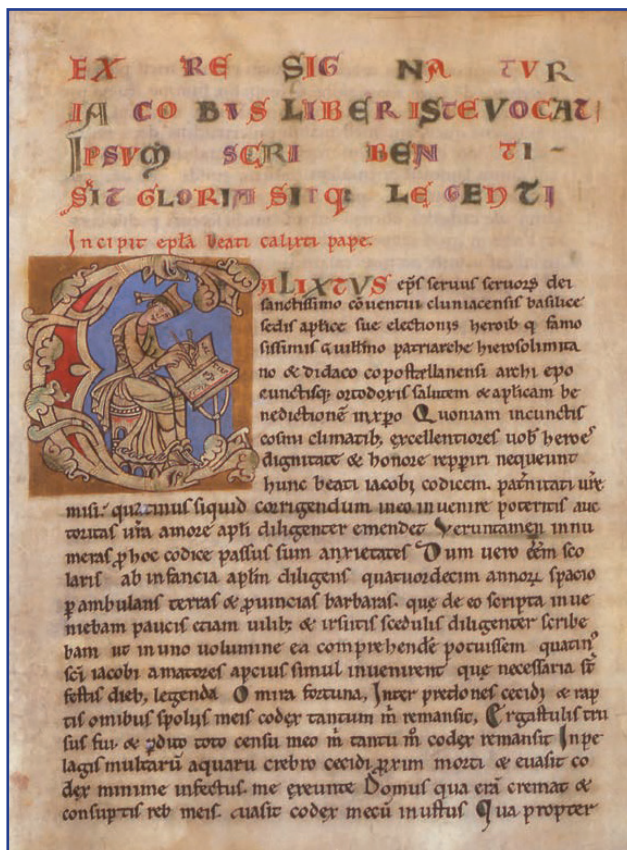 EX RE SIG NA TVR
IA CO BVS LIBER ISTE VOCAT
IPSVM SCRI BEN TI -
SIT GLORIA SITQ: LE GENTI
Incipit epła beati calixti pape.
CALIXTVS ep̅s seruus seruoꝝ dei
sanctissimo cōuentui cluniacensis basilice
sedis aplice sue electionis heroib q famo
sissimis Guillmo patriarche hierosolimita
no & didaco copostellanensi archi epo
cunctisq; ortodoxis salutem & aplicam be
nedictionē inxpo Quoniam incunctis
cosmi climatib; excellentiores uob heroes
dignitate & honore repperiri nequeunt
hunc beati iacobi codicem. pat̅nitati ur̅e
misi. quatinus siquid corrigendum ineo inuenire poteritis auc
toritas ur̅a amore apli diligenter emendet Veruntamen innu
meras ꝓ hoc codice passus sum anxietates Dum uero eēm sco
laris ab infancia aplm diligens quatuordecim annoꝝ spacio
ꝑ ambulans terras & ꝓuincias barbaras. que de eo scripta inue
niebam paucis etiam uilib; & irsutis scedulis diligenter scribe
bam ut in uno uolumine ea comprehende potuissem quatin⁹
sc̅i iacobi amatores apcius simul inuenirent que necessaria st̅
festis dieb; legenda O mira fortuna, Inter predones cecidi & rap
tis omibus spoliis meis codex tantum m̅ remansit, Ergastulis tru
sus fui. & ꝑdito toto censu meo m̅ tantu m̊ codex remansit Inpe
lagis multarū aquaru crebro cecidi. ꝓxim morti & euasit co
dex minime infectus. me exeunte Domus qua erā cremat &
consuptis reb meis. euasit codex mecū inustus Qua propter